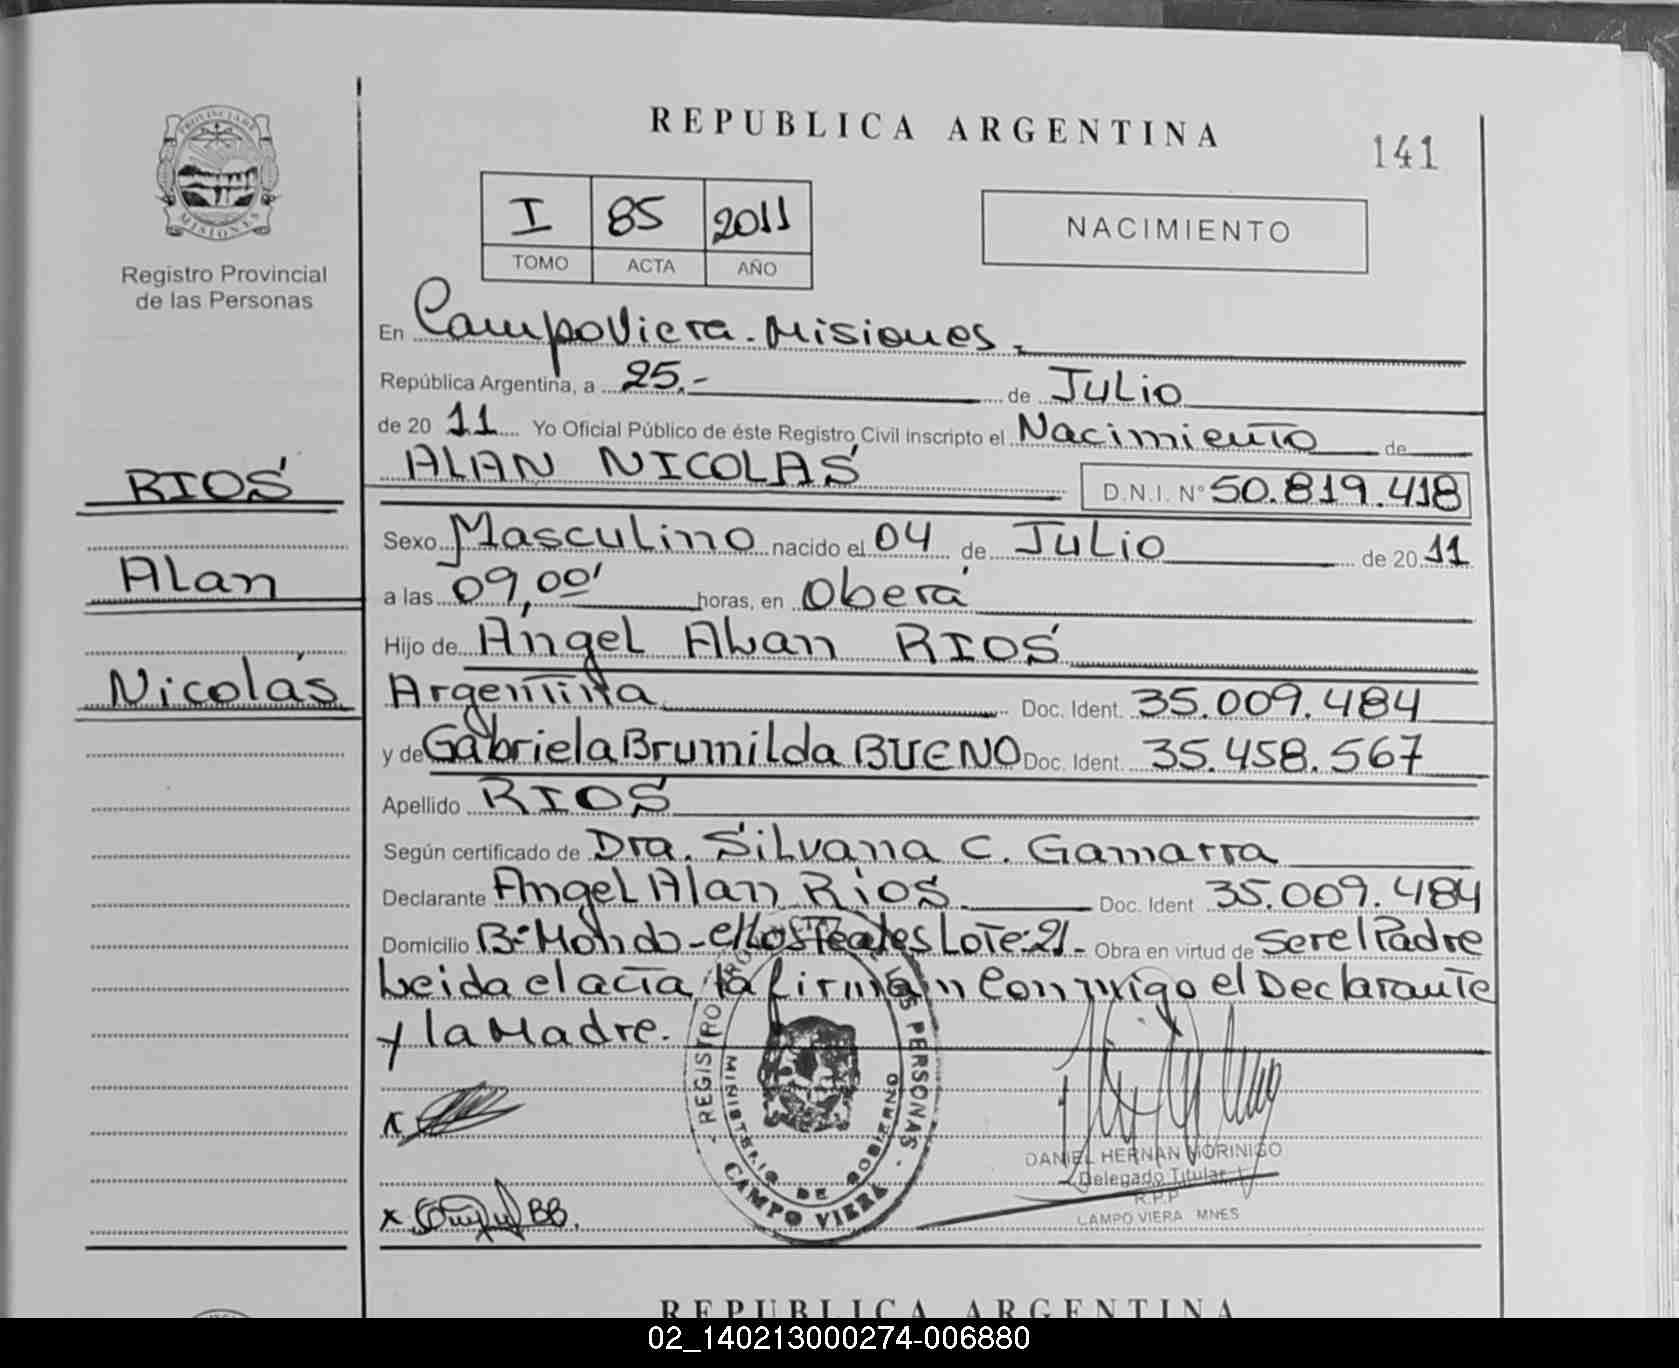 REPUBLICA ARGENTINA
141
PROVINCIA DE
MISIONES
Registro Provincial
de las Personas
I 85 2011
TOMO ACTA AÑO
NACIMIENTO
En Campo Viera - Misiones.
República Argentina, a 25.- de Julio
de 20 11 Yo Oficial Público de éste Registro Civil inscripto el Nacimiento de
RIOS
ALAN NICOLAS
D.N.I. N° 50.819.418
Sexo Masculino nacido el 04 de Julio de 20 11
Alan
a las 09,00' horas, en Oberá
Hijo de Angel Alan RIOS
Nicolás
Argentina Doc. Ident. 35.009.484
y de Gabriela Brumilda BUENO Doc. Ident. 35.458.567
Apellido RIOS
Según certificado de Dra. Silvana C. Gamarra
Declarante Angel Alan Rios Doc. Ident 35.009.484
Domicilio B° Mondo - Lote: 21.- Obra en virtud de ser el Padre
Leida el acta la firman conmigo el Declarante
y la Madre.
REGISTRO LAS PERSONAS
MINISTERIO DE GOBIERNO
CAMPO VIERA
x
x BB.
DANIEL HERNAN MORINIGO
Delegado Titular
R.P.P
CAMPO VIERA MNES
REPUBLICA ARGENTINA
02_140213000274-006880